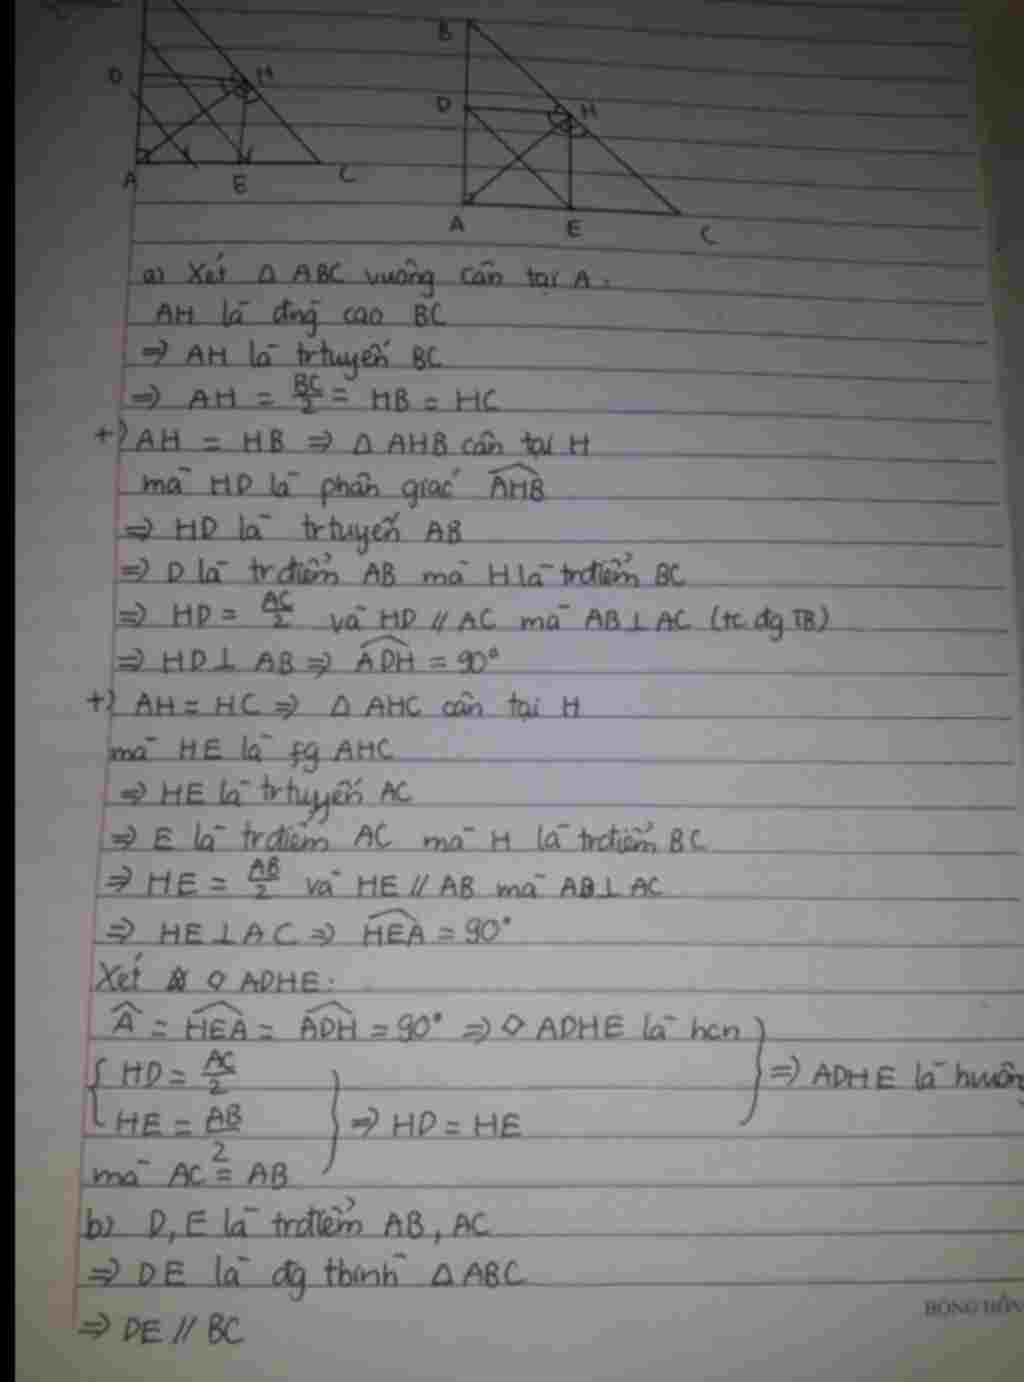 D H
A E C
B
D H
A E C
a) Xét Δ ABC vuông cân tại A.
AH là đng cao BC
⇒ AH là trtuyến BC
⇒ AH = BC/2 = HB = HC
+) AH = HB ⇒ Δ AHB cân tại H
mà HD là phân giác AHB
⇒ HD là trtuyến AB
⇒ D là trđiểm AB mà H là trđiểm BC
⇒ HD = AC/2 và HD // AC mà AB ⊥ AC (tc đg TB)
⇒ HD ⊥ AB ⇒ ADH = 90°
+) AH = HC ⇒ Δ AHC cân tại H
mà HE là fg AHC
⇒ HE là trtuyến AC
⇒ E là trđiểm AC mà H là trđiểm BC
⇒ HE = AB/2 và HE // AB mà AB ⊥ AC
⇒ HE ⊥ AC ⇒ HEA = 90°
Xét ◇ ADHE:
A = HEA = ADH = 90° ⇒ ◇ ADHE là hcn
HD = AC/2
⇒ ADHE là hvuông
HE = AB/2
⇒ HD = HE
mà AC = AB
b) D, E là trđiểm AB, AC
⇒ DE là đg tbình Δ ABC
⇒ DE // BC